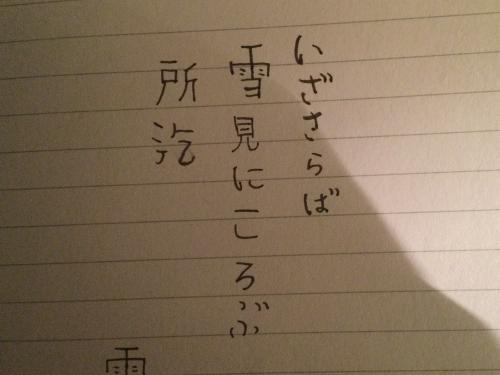 いざさらば
雪見にころぶ
所迄
雪